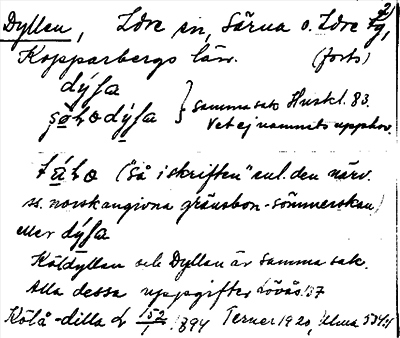 Dyllen, Idre sn, Särna o. Idre tg, 2
Kopparbergs län. (forts)
dýła
samma sak Huskl. 83.
Vet ej namnets upphov.
("så i skriften" enl. den närv.
ss. norsk angivna gränsbon-sömmerskan)
eller dýła
Köldyllen och Dyllen är samma sak.
Alla dessa uppgifter Lövås. 37
Kölå-dilla L 152/1 1894 Terner 1920, Ulma